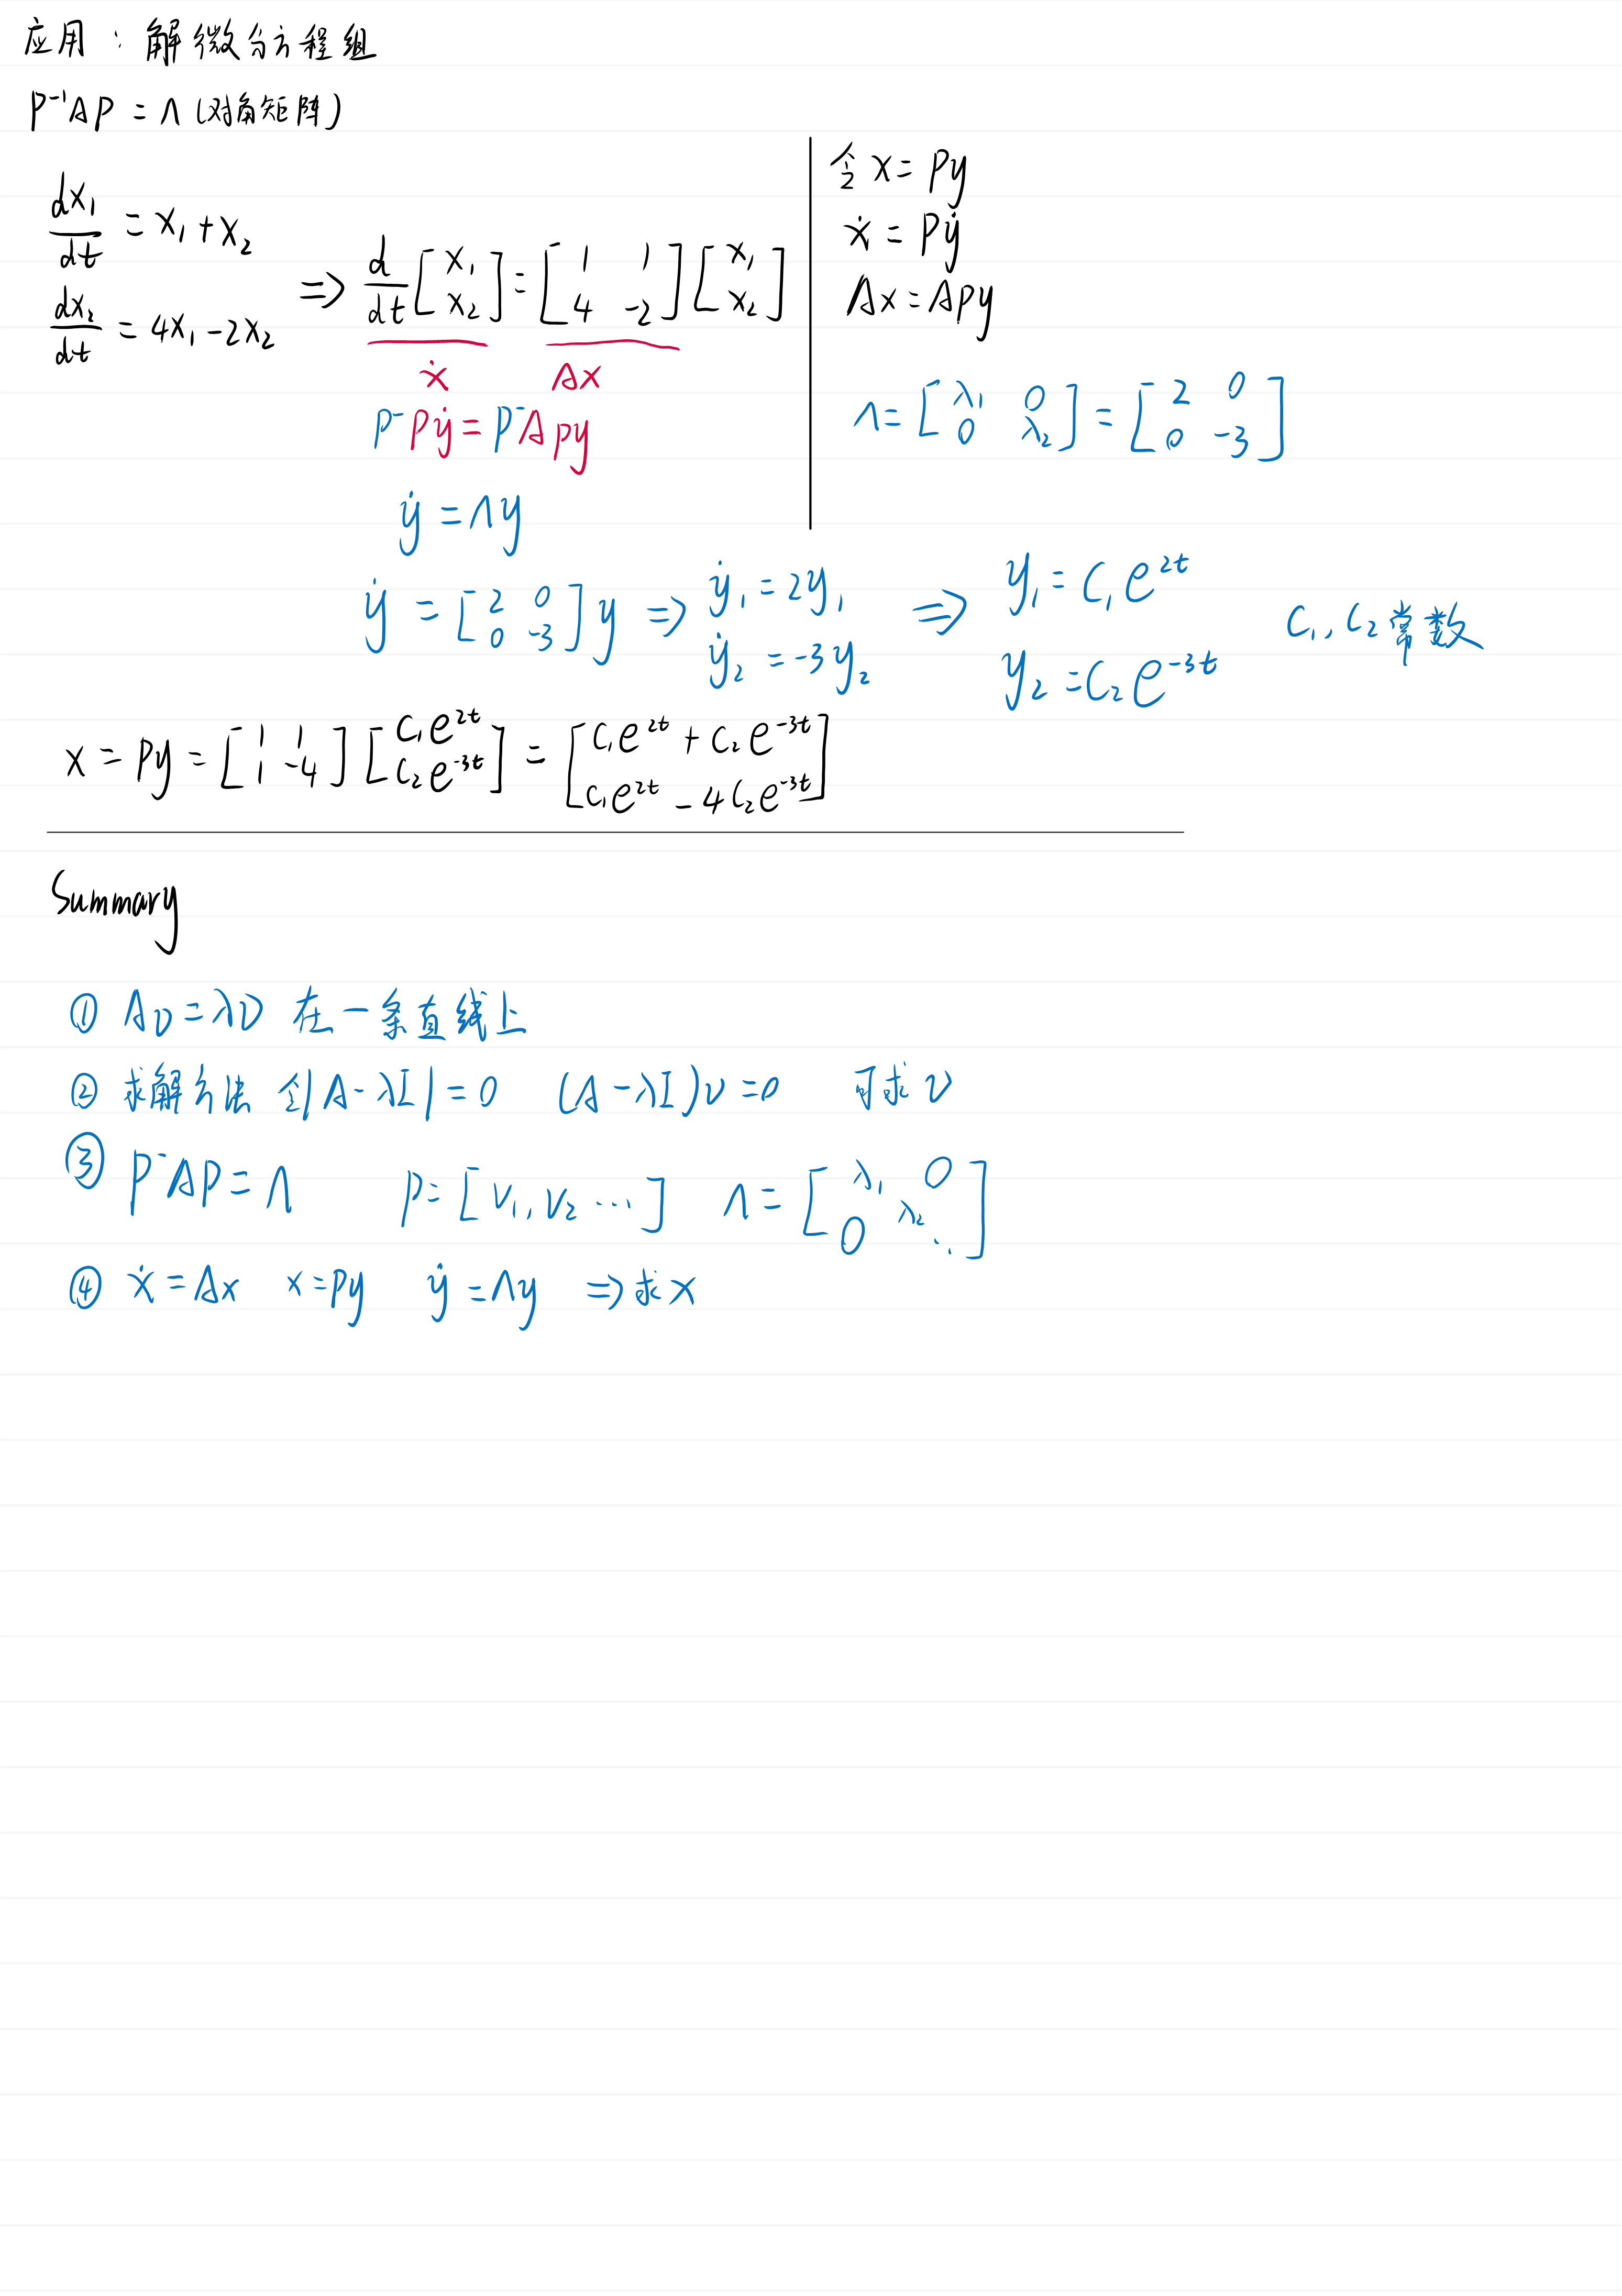 应用：解微分方程组
P⁻¹AP = Λ (对角矩阵)
dx₁/dt = x₁ + x₂
dx₂/dt = 4x₁ - 2x₂
⇒ d/dt [x₁; x₂] = [1 1; 4 -2] [x₁; x₂]
ẋ Ax
P⁻Pẏ = P⁻APy
ẏ = Λy
令 x = Py
ẋ = Pẏ
Ax = APy
Λ = [λ₁ 0; 0 λ₂] = [2 0; 0 -3]
ẏ = [2 0; 0 -3] y ⇒ ẏ₁ = 2y₁ ⇒ y₁ = C₁e^{2t}
ẏ₂ = -3y₂ y₂ = C₂e^{-3t}
C₁, C₂ 常数
x = Py = [1 1; 1 -4] [C₁e^{2t}; C₂e^{-3t}] = [C₁e^{2t} + C₂e^{-3t}; C₁e^{2t} - 4C₂e^{-3t}]
Summary
① Aν = λν 在一条直线上
② 求解方法 令|A - λI| = 0 (A - λI)ν = 0 可求 ν
③ P⁻AP = Λ P = [ν₁, ν₂ ⋯] Λ = [λ₁ 0; 0 λ₂ ⋱]
④ ẋ = Ax x = Py ẏ = Λy ⇒ 求 x